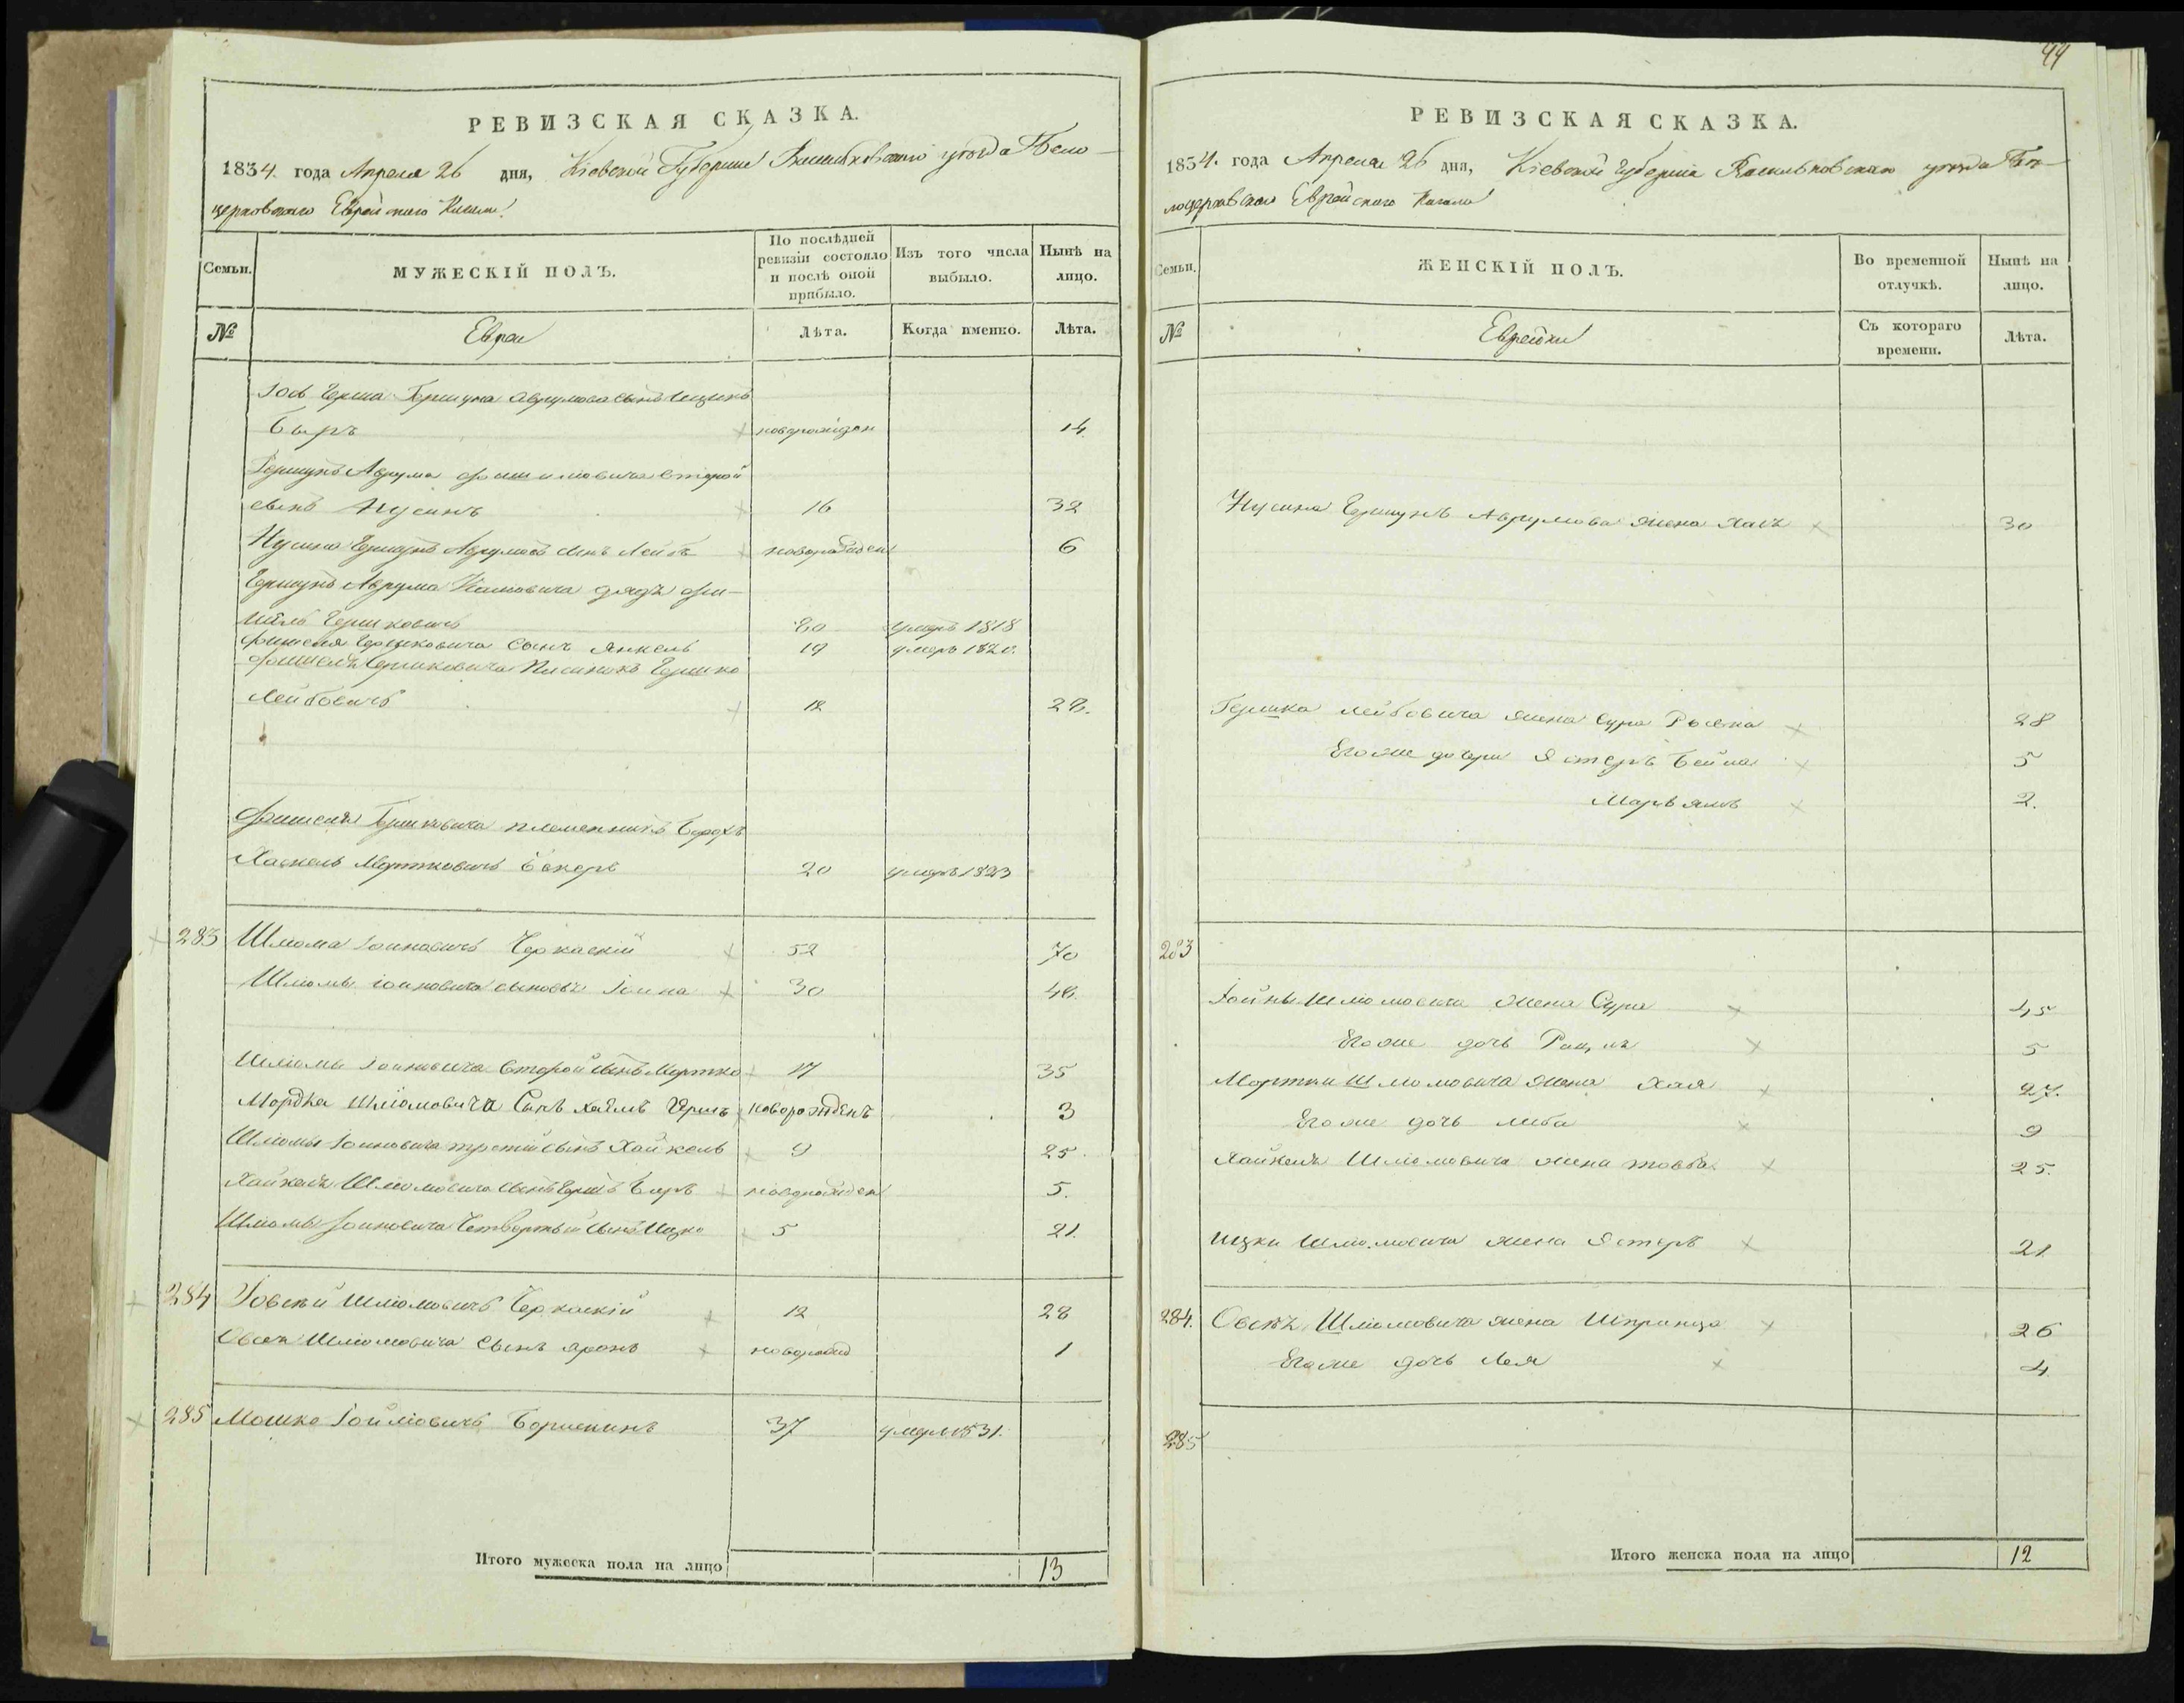 РЕВИЗСКАЯ СКАЗКА.
1834. года Апреля 26 дня, Кіевской Губерніи Васильковского уезда Бело-
церковского Еврейского Кагала
Семьи.
МУЖЕСКІЙ ПОЛЪ.
По послѣдней ревизіи состояло и послѣ оной прибыло.
Изъ того числа выбыло.
Нынѣ на лицо.
№
Евреи
Лѣта.
Когда именно.
Лѣта.
Гершуна Аврумова сынъ
Беръ новорожден 14
Гершунъ Аврума второй
сынъ Нусинъ 16 32
Нусина Гершунъ Аврумов сынъ Лейба новорожден 6
Гершунъ Аврума дядя Фи-
шель Гершковичъ 80 умеръ 1818
Фишеля Гершковича сынъ Янкель 19 умеръ 1820.
Фишеля Гершковича Гершко
Лейбовичъ 12 28.
Фишеля Гершковича племенникъ Борохъ
Хаскель Мортковичъ 20 умеръ 1823
283 Шлиома Іоиновичъ Черкаскій 52 70
Шлиомы Іоиновича сыновья Іоина 30 48.
Шлиомы Іоиновича второй сынъ Мортко 17 35
Мордка Шліомовича Сынъ Хаимъ Гершъ новорожденъ 3
Шлиомы Іоиновича третій сынъ Хайкель 9 25.
Хайкеля Шлиомовича сынъ Гершъ Беръ новорожден 5.
Шлиомы Іоиновича Четвертый сынъ Ицко 5 21.
284 Іовсей Шлиомовичъ Черкаскій 12 28
Овсея Шлиомовича сынъ Аронъ новорожд 1
285 Мошко 37 умеръ 1831.
Итого мужеска пола на лицо 13
44
РЕВИЗСКАЯ СКАЗКА.
1834. года Апреля 26 дня, Кіевской Губерніи Васильковского уезда Бе-
лоцерковского Еврейского Кагала
Семьи.
ЖЕНСКІЙ ПОЛЪ.
Во временной отлучкѣ.
Нынѣ на лицо.
№
Еврейки
Съ котораго времени.
Лѣта.
Нусина Гершунъ Аврумова жена Хая 30
Гершка Лейбовича жена Сура 28
Егоже дочери Эстеръ Бейла 5
Марьямъ 2.
283
Іойны Шлиомовича жена Сура 45
Егоже дочь 5
Мортки Шлиомовича жена Хая 27.
Егоже дочь Либа 9
Хайкеля Шлиомовича жена Товба 25.
Ицки Шлиомовича жена Эстеръ 21
284. Овсея Шлиомовича жена Шпринца 26
Егоже дочь Лея 4
285
Итого женска пола на лицо 12